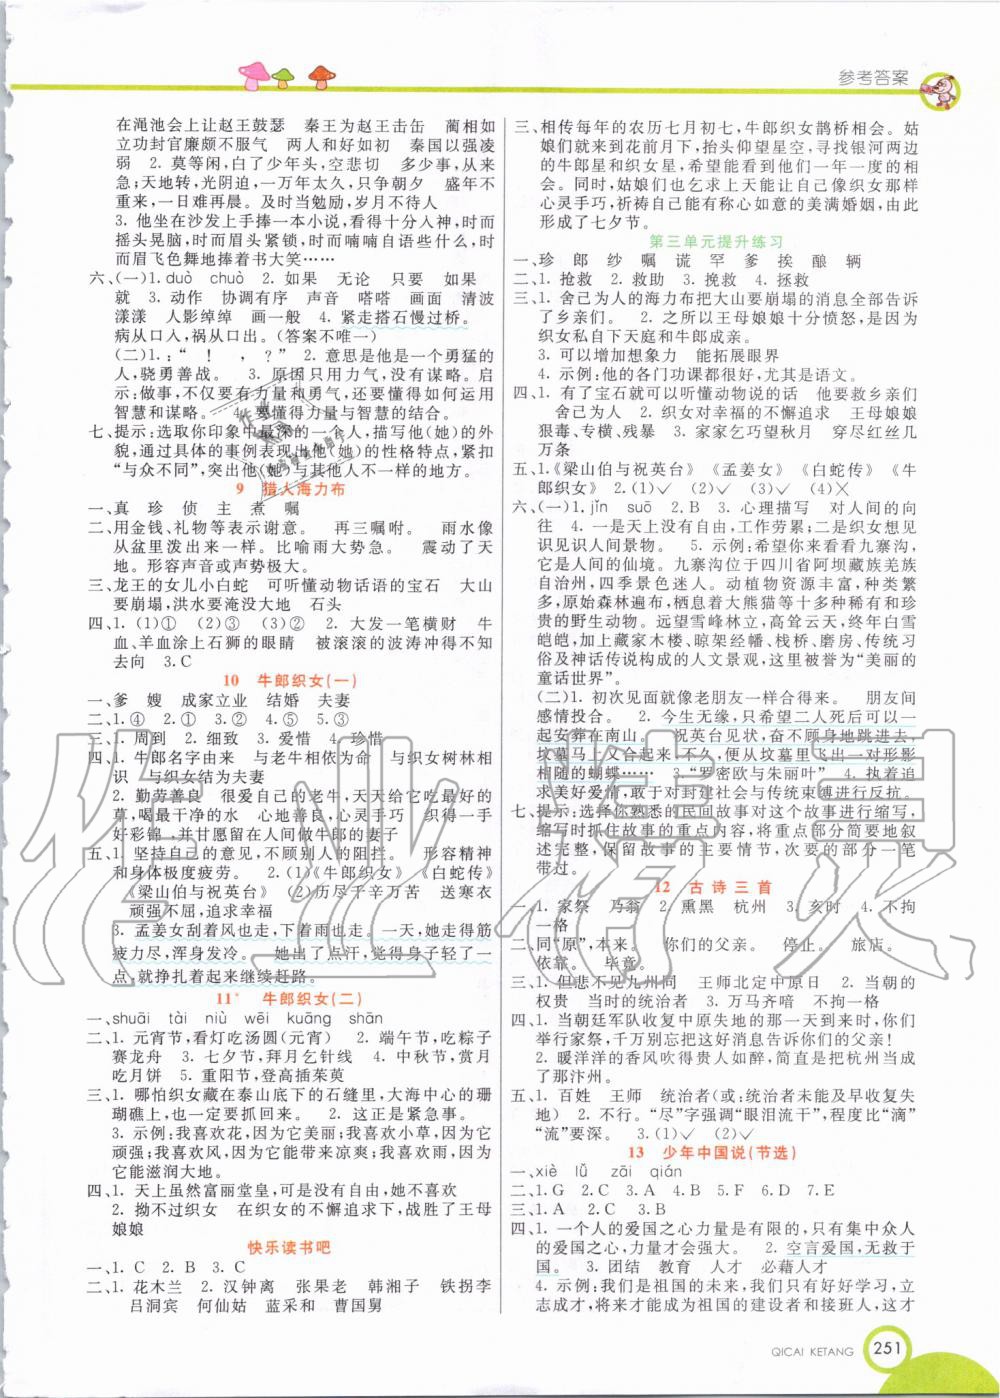 参考答案
在渑池会上让赵王鼓瑟　秦王为赵王击缶　蔺相如
立功封官廉颇不服气　两人和好如初　秦国以强凌
弱　2. 莫等闲,白了少年头,空悲切　多少事,从来
急;天地转,光阴迫,一万年太久,只争朝夕　盛年不
重来,一日难再晨。及时当勉励,岁月不待人
3. 他坐在沙发上手捧一本小说,看得十分入神,时而
摇头晃脑,时而眉头紧锁,时而喃喃自语些什么,时
而眉飞色舞地捧着书大笑……
六、(一)1. duò　chuò　2. 如果　无论　只要　如果
就　3. 动作　协调有序　声音　嗒嗒　画面　清波
漾漾　人影绰绰　画一般　4. 紧走搭石慢过桥。
病从口入,祸从口出。(答案不唯一)
(二)1. :“　！　，？”　2. 意思是他一个勇猛的
人,骁勇善战。　3. 原因只用力气,没有计谋。启
示:做事,不仅要有力量和勇气,还要懂得如何运用
智慧和谋略。　4. 要懂得力量与智慧的结合。
七、提示:选取你印象中最深的一个人,描写他(她)的外
貌,通过具体事例表现出他(她)的性格特点,抓紧
“与众不同”,突出他(她)和其他人不一样的地方。
9　猎人海力布
一、真　珍　侦　主　煮　嘱
二、用金钱、礼物等表示谢意。　再三嘱咐。　雨水像
从盆里泼出来一样。比喻雨大雨急。　震动了天
地。形容声音或声势极大。
三、龙王的女儿小白蛇　可听懂动物话语的宝石　大山
要崩塌,洪水要淹没大地　石头
四、1. (1)①　(2)③　(3)②　2. 大发一笔横财　牛
血、羊血涂上石狮的眼睛　被滚滚的波涛冲得不知
去向　3.C
10　牛郎织女(一)
一、爹　嫂　成家立业　结婚　夫妻
二、1. ④　2. ①　3. ②　4. ⑤　5. ③
三、1. 周到　2. 细致　3. 爱惜　4. 珍惜
四、1. 牛郎名字由来　与老牛相依为命　与织女树林相
识　与织女结为夫妻
2. 勤劳善良　很爱自己的老牛　给老牛吃最好的
草,喝最干净的水　心地善良,心灵手巧　织得一手
好彩锦,并甘愿留在人间做牛郎的妻子
五、1. 坚持自己的意见,不顾别人的阻拦。　形容精神
和身体极度疲劳。　2.(1)《牛郎织女》　《白蛇传》
《梁山伯与祝英台》　(2)历尽千辛万苦　送寒衣
顽强不屈,追求幸福
3. 孟姜女刮着风也走,下着雨也走。一天,她走得筋
疲力尽,浑身发冷。　她出了点汗,觉得身子轻了一
点,就挣扎着起来继续赶路。
11*　牛郎织女(二)
一、shuāi　tài　niù　wēi　kuāng　shān
二、1. 元宵节,看灯吃汤圆(元宵)　2. 端午节,吃粽子
赛龙舟　3. 七夕节,拜月乞针线　4. 中秋节,赏月
吃月饼　5. 重阳节,登高插茱萸
三、1. 哪怕织女藏在泰山底下的石缝里,大海中心的珊
瑚礁上,也一定要找回来。　2. 这正是紧要关头。
3. 示例:我喜欢花,因为它美丽;我喜欢小草,因为它
充满生机;我喜欢树,因为它能带来凉爽;我喜欢雨,因为
它能滋润大地。
四、1. 天上虽然富丽堂皇,可没有自由,她不喜欢
2. 拗不过织女　在织女的不懈追求下,战胜了王母
娘娘
快乐读书吧
一、1. C　2. B　3. C
二、1. 花木兰　2. 汉钟离　张果老　韩湘子　铁拐李
吕洞宾　何仙姑　蓝采和　曹国舅
三、相传每年的农历七月初七,牛郎织女鹊桥相会。姑
娘们就来到花前月下,抬头仰望星空,寻找银河两边
的牛郎星和织女星,希望能看到他们一年一度的相
会。同时,姑娘们也乞求上天能让自己像织女那样
心灵手巧,祈祷自己能有称心如意的美满婚姻,由此
形成了七夕节。
第三单元提升练习
一、珍　郎　纱　嘱　谎　罕　爹　挨　酿　辆
二、1. 抢救　2. 救助　3. 挽救　4. 拯救
三、1. 舍己为人的海力布把大山要崩塌的消息全部告诉
了乡亲们。　2. 之所以王母娘娘十分愤怒,是因为
织女私自下天庭和牛郎成亲。
3. 可以增加想象力　能拓展眼界
4. 示例:他的各门功课都很好,尤其是语文。
四、1. 有了宝石可以听懂动物说的话　他要救乡亲们
舍己为人　2. 织女对幸福的不懈追求　王母娘娘
狠毒、专长、残暴　3. 家家乞巧望秋月　穿尽红丝几
万条
五、1.《梁山伯与祝英台》　《孟姜女》　《白蛇传》　《牛
郎织女》　2.(1)✓　(2)✓
六、(一)1. jǐn　suō　2. B　3. 心理描写　对人间的向
往　4. 一是天上没有自由,工作劳累;二是织女想见
识见识人间景象。　5. 示例:希望你来看看九寨沟,
它是人间的仙境。九寨沟位于四川省阿坝藏族羌族
自治州,四季景色迷人。动植物资源丰富,种类繁
多,原始森林遍布,栖息着大熊猫等十多种稀有和珍
贵的野生动物。远望雪峰林立,高耸云天,终年白雪
皑皑,加上藏家木楼、晾架经幡、栈桥、磨房、传统习
俗及神话传说构成的人文景观,这里被誉为“美丽的
童话世界”。
(二)1. 初次见面就像老朋友一样合得来。　朋友间
感情投合。　2. 今生无缘,只希望二人死后可以一
起安葬在南山。　祝英台见状,奋不顾身地跳进去,
坟墓马上又合起来。不久,便从坟墓里飞出一对形影
相随的蝴蝶……　3.“罗密欧与朱丽叶”　4. 执着追
求美好爱情,敢于对封建社会与传统束缚进行反抗。
七、提示:选择你熟悉的民间故事对这个故事进行缩写,
缩写时抓住故事的重点内容,将重点部分简要地叙
述完整,保留故事的主要情节,次要的一部分一笔
带过。
12　古诗三首
一、1. 家祭　乃翁　2. 熏黑　杭州　3. 亥时　4. 不拘
一格
二、同“原”,本来。　你们的父亲。　停止。　旅店。
依靠。　毕竟。
三、1. 但悲不见九州同　王师北定中原日　2. 当朝的
权贵　当时的统治者　3. 万马齐喑　不拘一格
四、1. 当朝廷军队收复中原失地的那一天到来时,你们
举行家祭,千万别忘把这好消息告诉你们的父亲!
2. 暖洋洋的香风吹得贵人如醉,简直是把杭州当成
了那汴州。
五、1. 百姓　王师　统治者(或统治者未能及早收复失
地)　2. 不行。“尽”字强调“眼泪流干”,程度比“滴”
“流”要深。　3.(1)✓　(2)✓
13　少年中国说(节选)
一、xiè　lǚ　zāi　qián
二、1. G　2. C　3. A　4. F　5. B　6. D　7. E
三、1. A　2. C　3. B
四、1. 一个人的爱国之心力量是有限的,只有集中众人
的爱国之心,力量才会强大。　2. 空言爱国,无救于
国。　3. 团结　教育　人才　必藉人才
4. 示例:我们是祖国的未来,我们只有好好学习,立
志成才,将来才能成为祖国的建设者和接班人,这才
QICAI KETANG　251
作业精灵